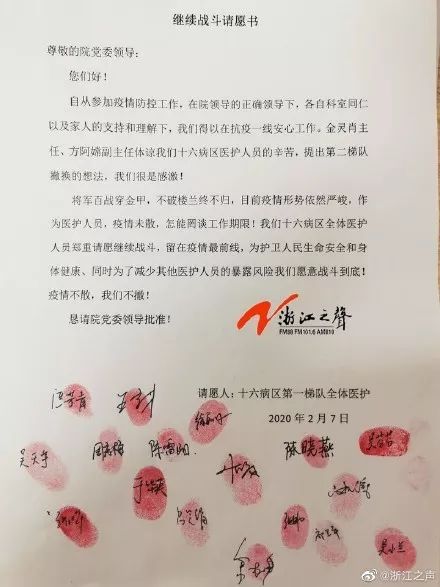 继续战斗请愿书
尊敬的院党委领导：
您们好！
自从参加疫情防控工作，在院领导的正确领导下，各自科室同仁
以及家人的支持和理解下，我们得以在抗疫一线安心工作。金灵肖主
任、方阿嫦副主任体谅我们十六病区医护人员的辛苦，提出第二梯队
撤换的想法，我们很是感激！
将军百战穿金甲，不破楼兰终不归，目前疫情形势依然严峻，作
为医护人员，疫情未散，怎能罔谈工作期限！我们十六病区全体医护
人员郑重请愿继续战斗，留在疫情最前线，为护卫人民生命安全和身
体健康、同时为了减少其他医护人员的暴露风险我们愿意战斗到底！
疫情不散，我们不撤！
恳请院党委领导批准！
浙江之聲
FM88 FM101.6 AM810
请愿人：十六病区第一梯队全体医护
2020 年 2 月 7 日
陈晓燕
@浙江之声